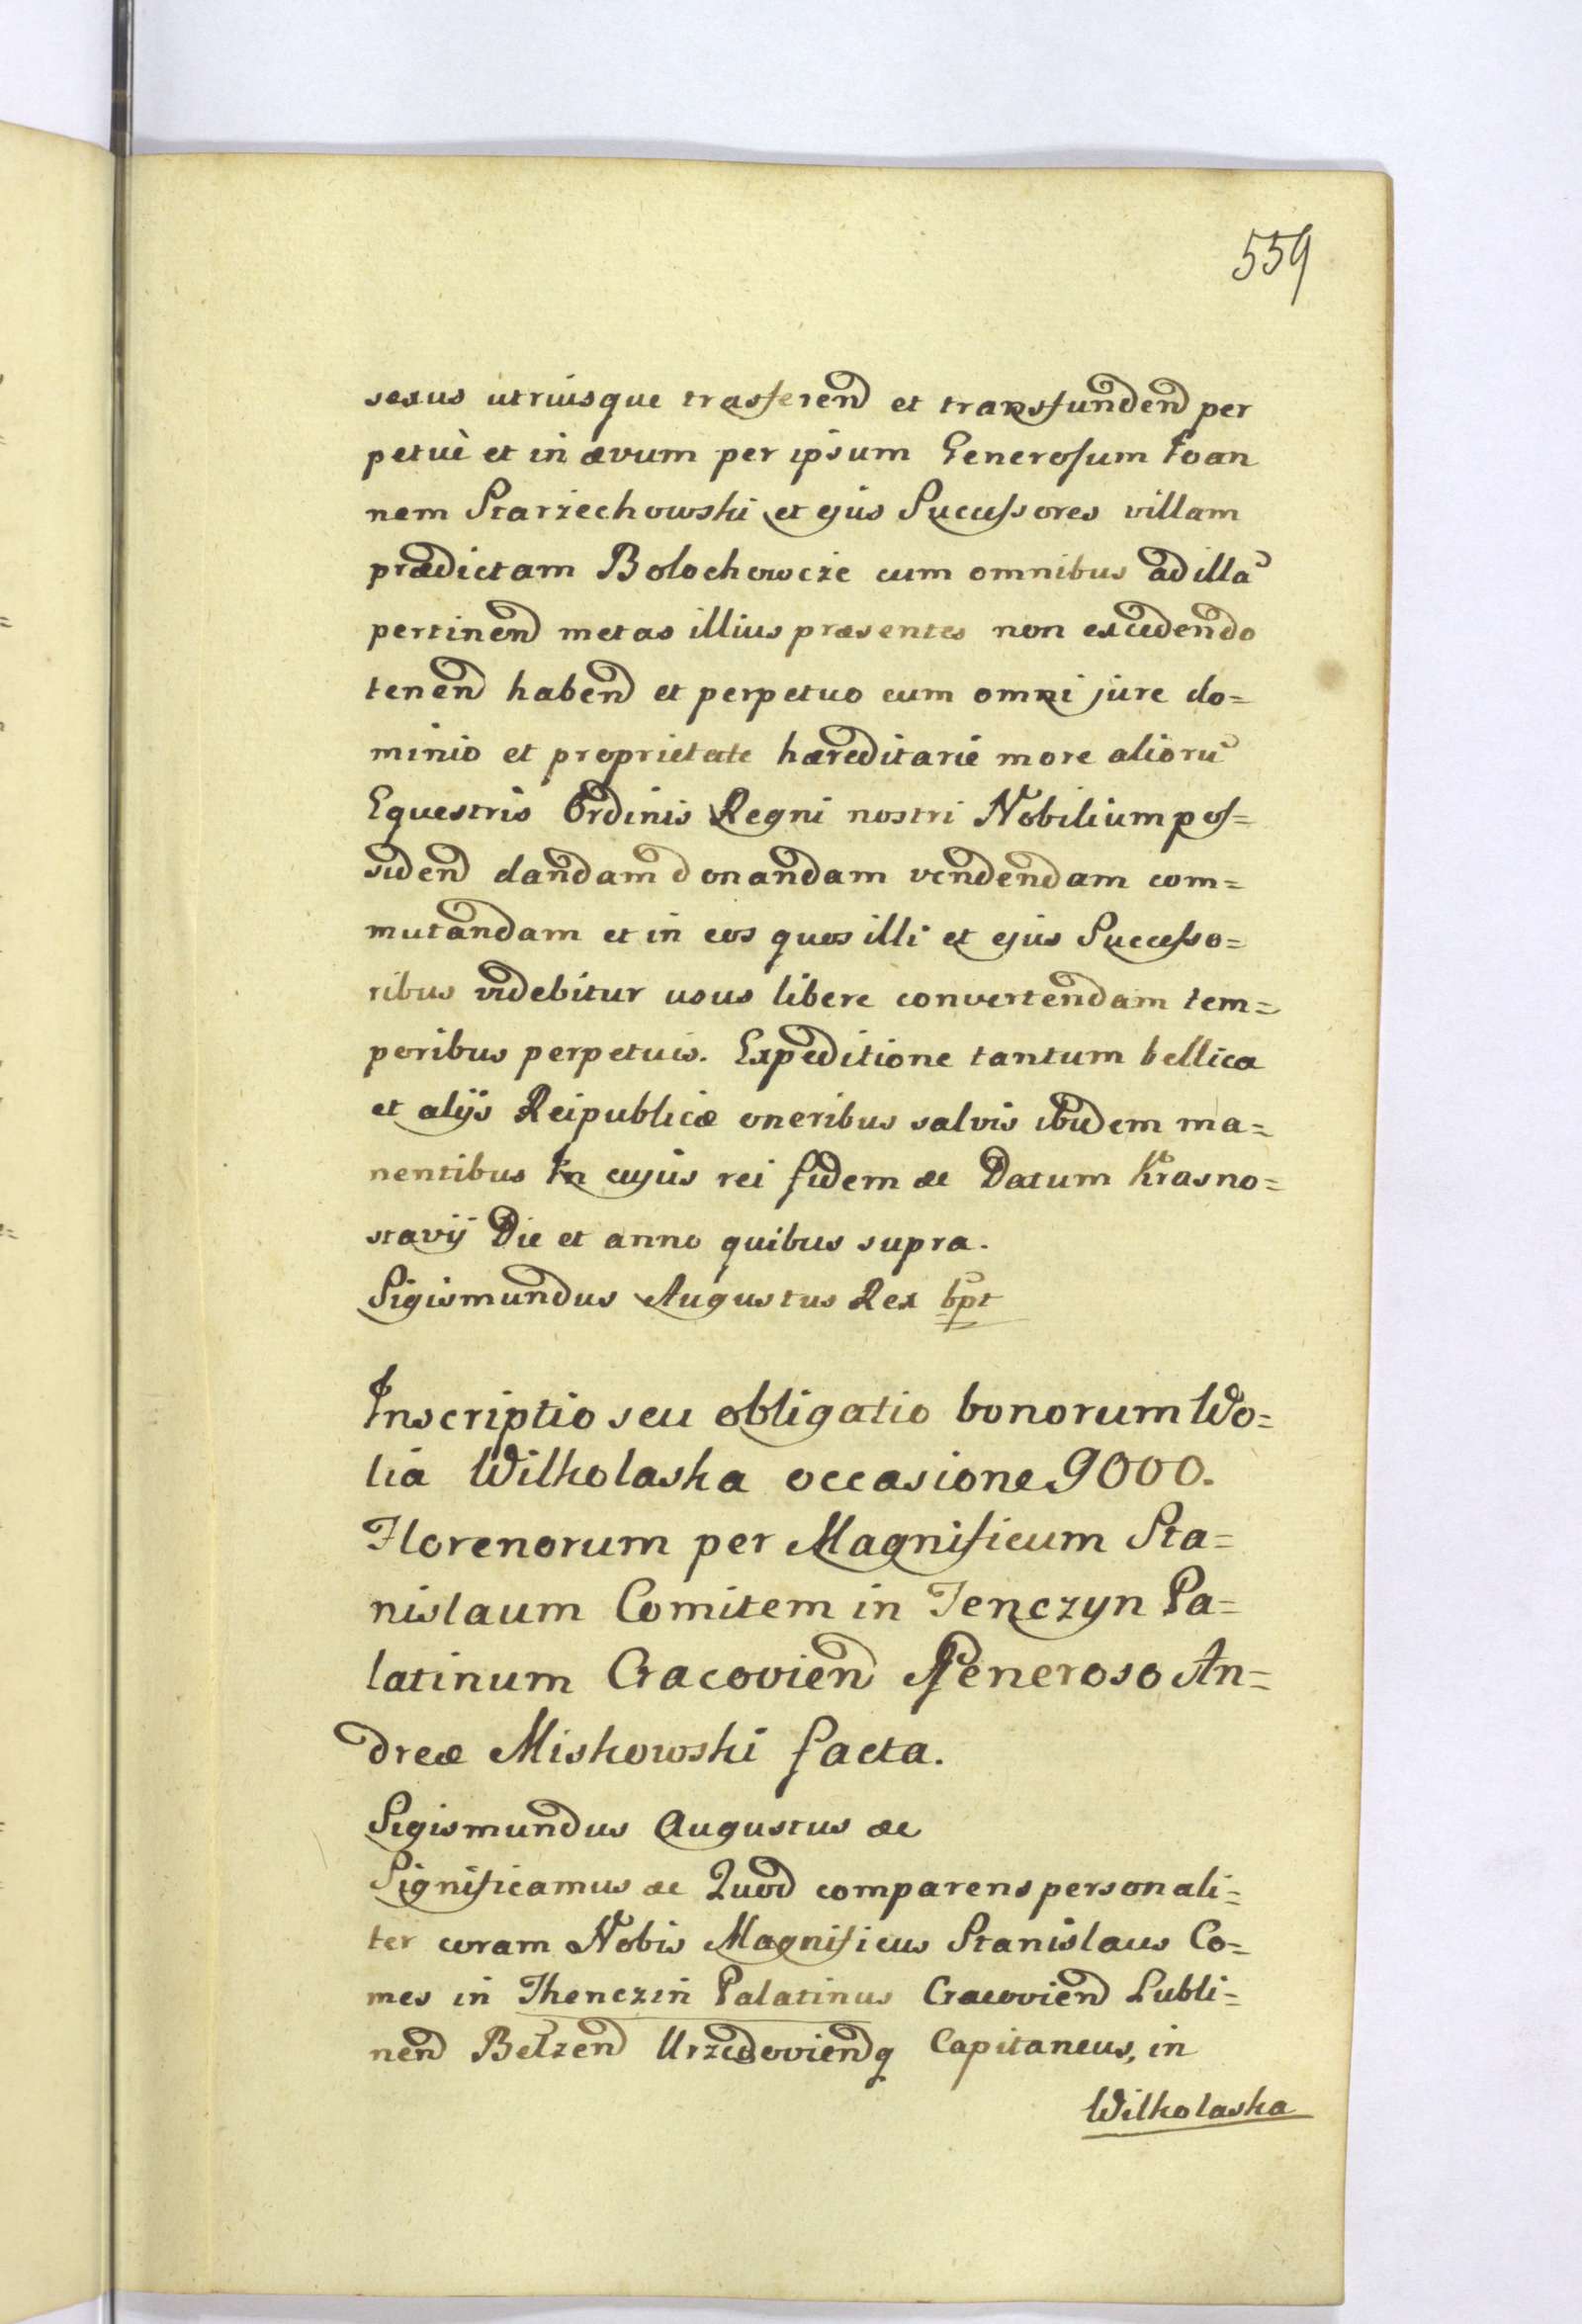 559
sexus utriusque trasferend et transfundend per
petuè et in ævum per ipsum Generosum Joan
nem Starzechowski et ejus Successores villam
prædictam Bolochowcze cum omnibus ad illa
pertinend metas illius præsentes non excedendo
tenend habend et perpetuo cum omni jure do=
minio et proprietate hæreditarie more alioru
Equestris Ordinis Regni nostri Nobilium pos=
sidend dandam donandam vendendam com=
mutandam et in eos quos illi et ejus Successo=
ribus videbitur usus libere convertendam tem=
poribus perpetuis. Expeditione tantum bellica
et alijs Reipublicæ oneribus salvis ibidem ma=
nentibus In cujus rei fidem &c Datum Krasno=
stavij Die et anno quibus supra.
Sigismundus Augustus Rex spt
Inscriptio seu obligatio bonorum Wo=
lia Wilkolaska occasione 9000.
Florenorum per Magnificum Sta=
nislaum Comitem in Tenczyn Pa=
latinum Cracovien Generoso An=
dreæ Miskowski facta.
Sigismundus Augustus &c
Significamus &c Quod comparens personali=
ter coram Nobis Magnificus Stanislaus Co=
mes in Thenczin Palatinus Cracovien Lubli=
nen Belzen Urzedovienq Capitaneus, in
Wilkolaska